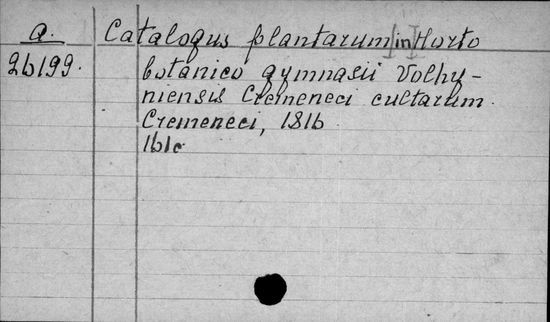 a.
26199.
Catalogus plantarum [in] Horto
botanico gymnasii Volhy-
niensis Cremeneci cultarum.
Cremeneci, 1816
161c